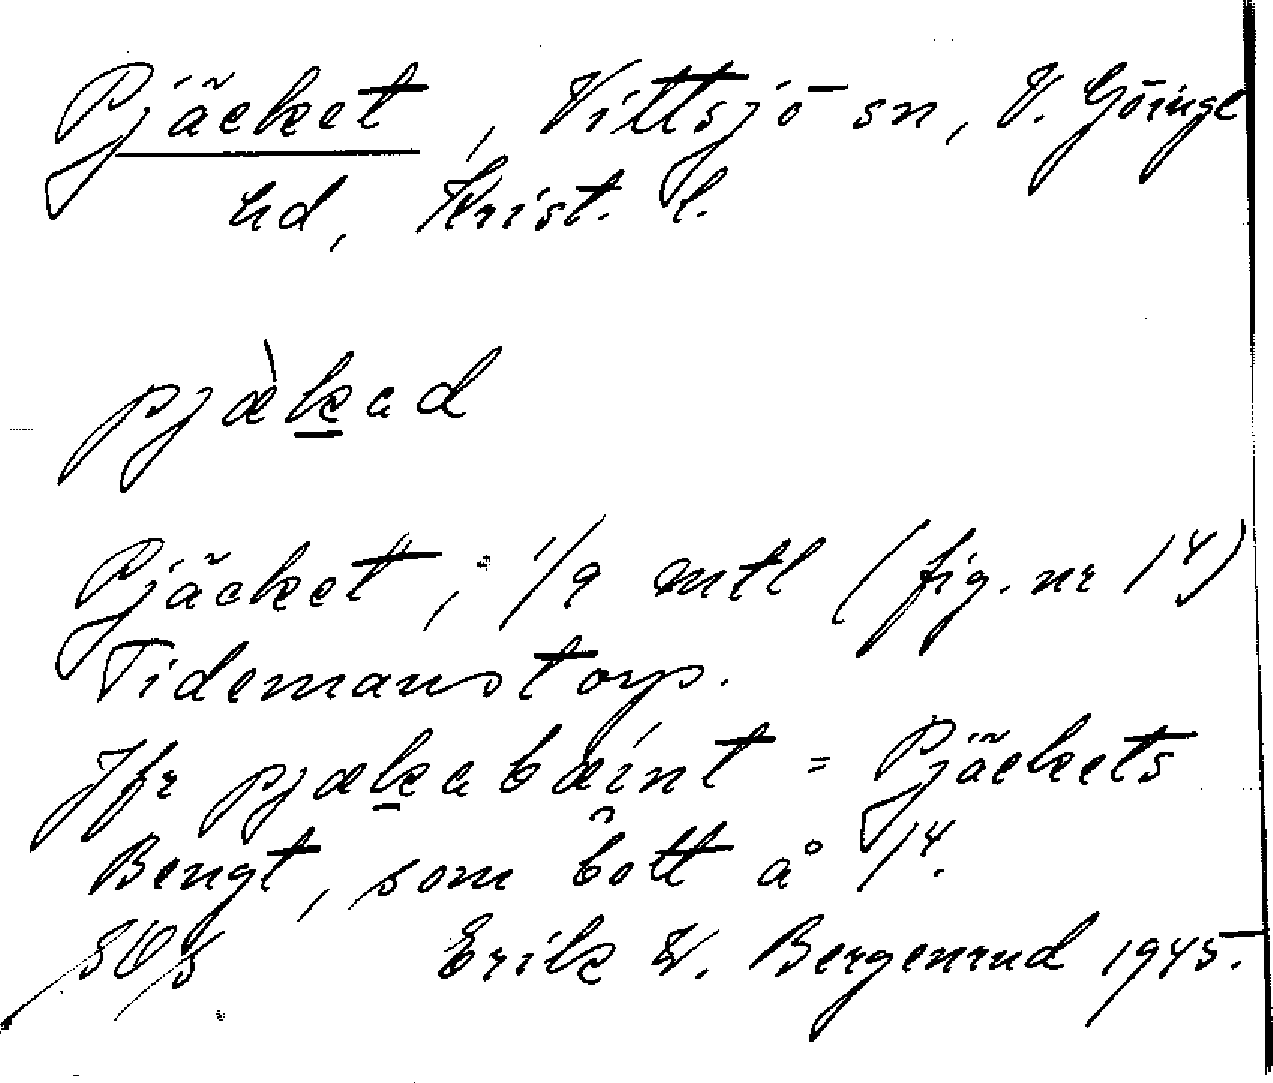 Pjäcket, Vittsjö sn, V. Göinge
hd, Krist. l.
pjæ̀k̲ad
Pjäcket, 1/9 mtl (fig. nr 14)
Tidemanstorp.
Jfr pjæk̲a bæ̯int = Pjäckets
Bengt, som bott å 14.
Erik W. Bergenrud 1945.